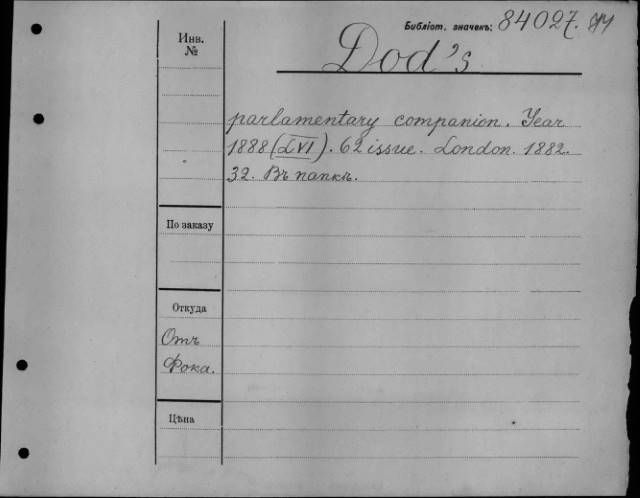 Библіот. значекъ: 84027.
Инв.
№
Dod's
parlamentary companion. Year
1888 (LVI). 62 issue. London. 1882.
32. Въ папкѣ.
По заказу
Откуда
Отъ
Фока.
Цѣна